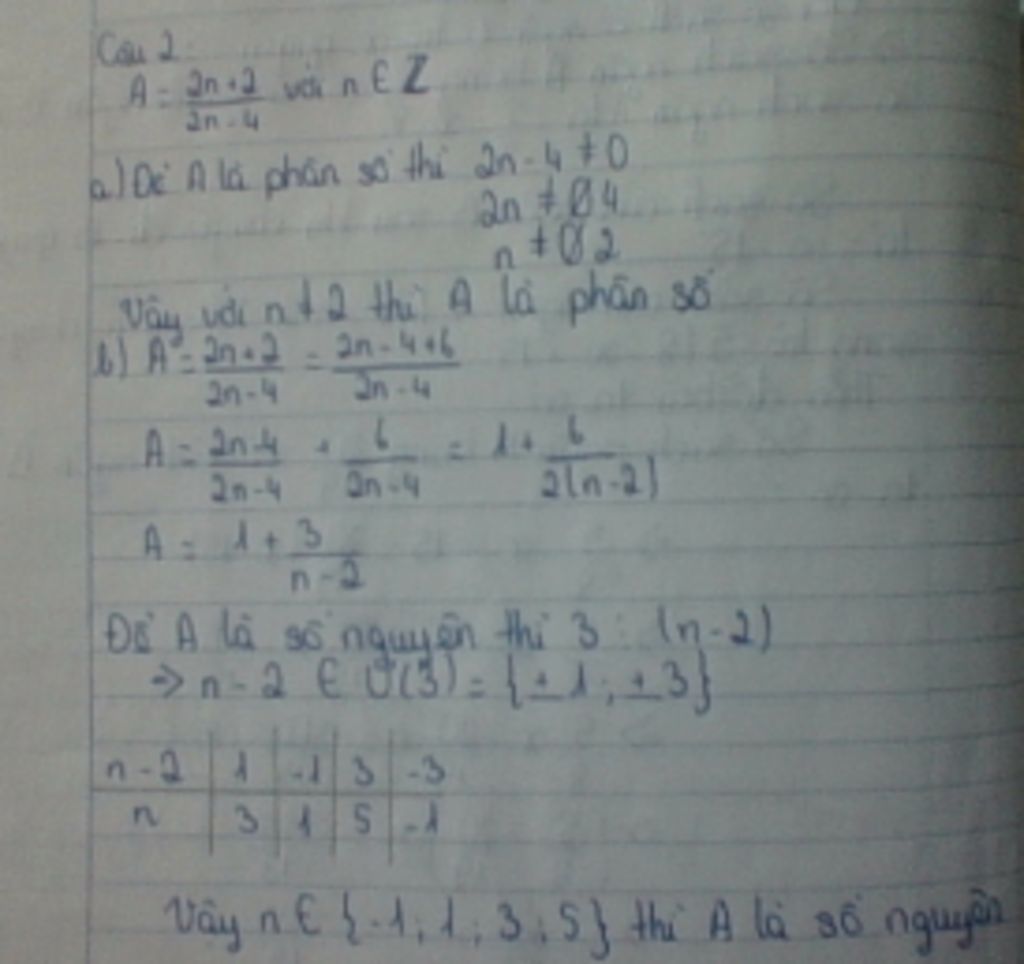 Câu 2:
A = (2n+2)/(2n-4) với n ∈ Z
a) Để A là phân số thì 2n - 4 ≠ 0
2n ≠ 4
n ≠ 2
Vậy với n ≠ 2 thì A là phân số
b) A = (2n+2)/(2n-4) = (2n-4+6)/(2n-4)
A = (2n-4)/(2n-4) + 6/(2n-4) = 1 + 6/(2(n-2))
A = 1 + 3/(n-2)
Để A là số nguyên thì 3 ⋮ (n-2)
=> n - 2 ∈ Ư(3) = {±1; ±3}
n-2 | 1 | -1 | 3 | -3
n | 3 | 1 | 5 | -1
Vậy n ∈ {-1; 1; 3; 5} thì A là số nguyên